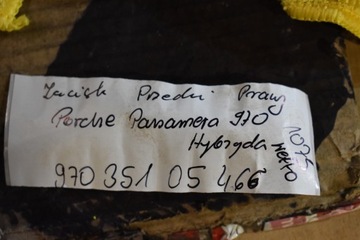 Zacisk Przedni Prawy
Porche Panamera 970
Hybryda
970 351 05 466
1075
netto